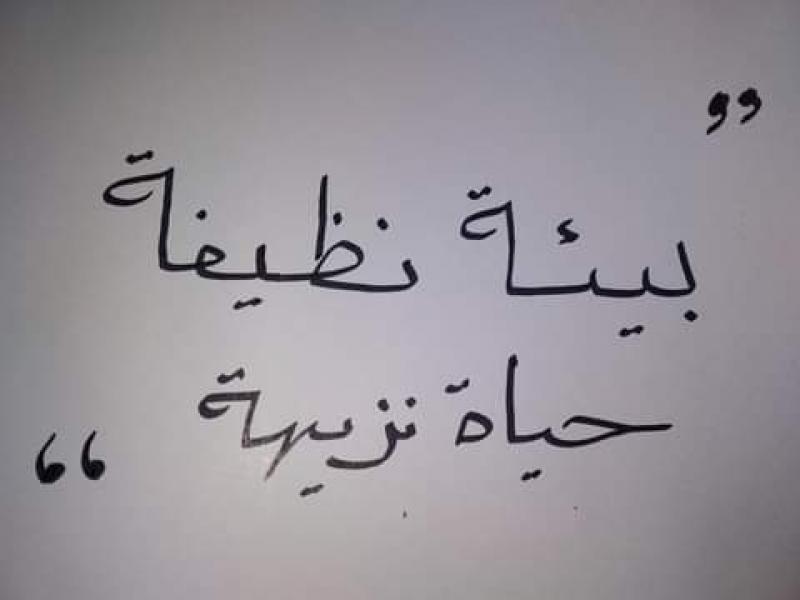 "بيئة نظيفة
حياة نزيهة"